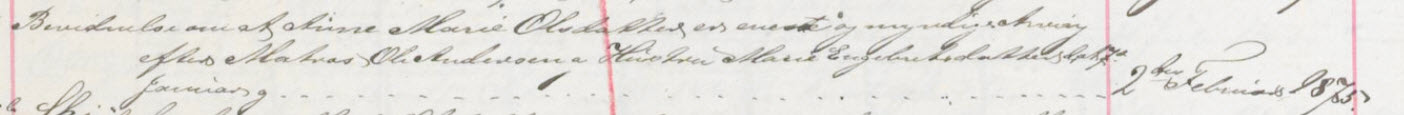 Bevidnelse om at Anne Marie Olsdatter er eneste og myndige Arving
efter Matros Ole Andersens Hustru Marie Engebretsdatter,
Januar
2den Februar 1875.